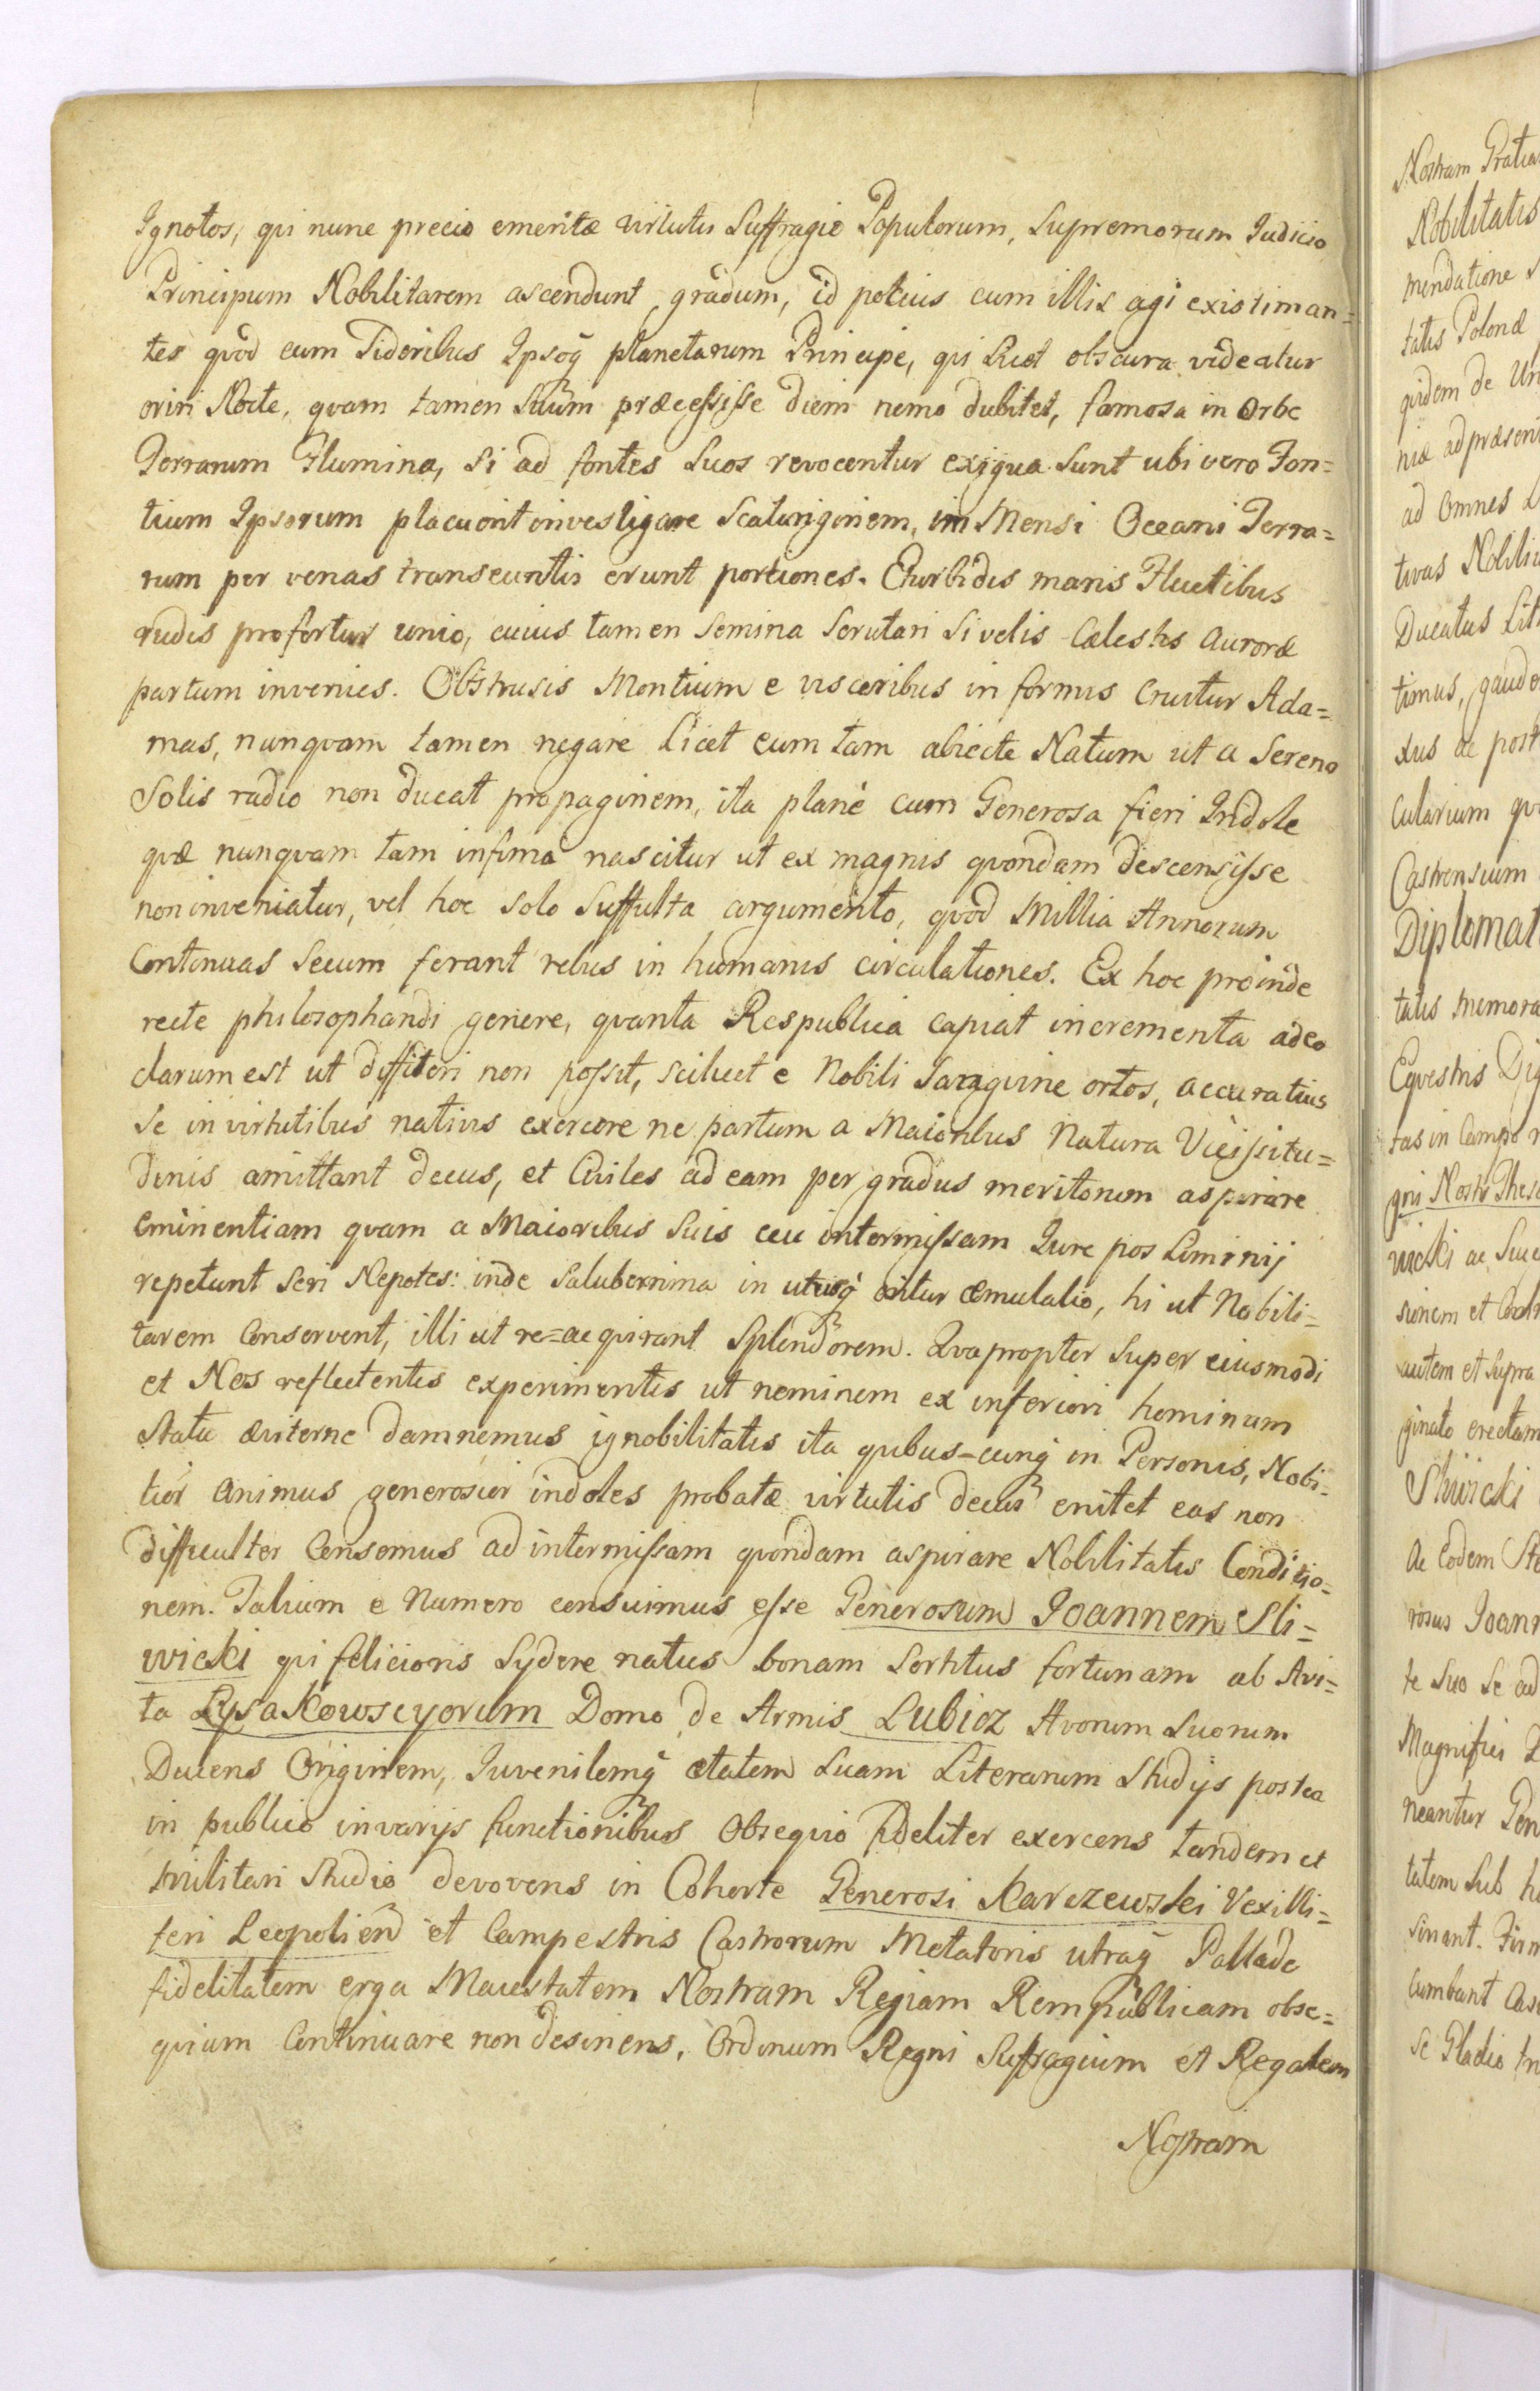 Ignotos, qvi nunc precio emeritæ virtutis Suffragio Populorum, Supremorum Iudicio
Principum Nobilitarem ascendunt gradum, id potius cum illis agi existiman=
tes qvòd cum Sideribus Ipsoq̃ planetarum Principe, qvi Licet obscura videatur
oriri Nocte, qvam tamen Suũm præcessisse diem nemo dubitet, famosa in Orbe
Terrarum Flumina, Si ad fontes Suos revocentur exigua Sunt ubi vero Fon=
tium Ipsorum placuerit investigare Scaturiginem, im Mensi Oceani Terra=
rum per venas transeuntis erunt portiones. E turbidis maris Fluctibus
rudis profertur unio, cuius tamen Semina Scrutari Si velis Cælestis Auroræ
partum invenies. Obstrusis Montium e visceribus in formis Eruitur Ada=
mas, nunqvam tamen negare Licet eum tam abiecte Natum ut a Sereno
Solis radio non ducat propaginem, ita planè cum Generosa fieri Indole
qvæ nunqvam tam infima nascitur ut ex magnis qvondam descensisse
non inveniatur, vel hoc Solo Suffulta argumento, qvòd Millia Annorum
Continuas Secum ferant rebus in humanis circulationes. Ex hoc proinde
recte philosophandi genere, qvanta Respublica capiat incrementa adeo
clarum est ut diffiteri non possit, scilicet e Nobili Sangvine ortos, accuratius
Se in virtutibus nativis exercere ne partum a Maioribus Natura Vicissitu=
dinis amittant decus, et Civiles ad eam per gradus meritorum aspirare
Eminentiam qvam a Maioribus Suis ceu intermissam Iure pos Liminij
repetunt Seri Nepotes: inde Saluberrima in utrisq̃ oritur æmulatio, hi ut Nobili=
tarem Conservent, illi ut re=acqvirant Splendorem. Qvapropter Super eiusmodi
et Nos reflectentes experimentis ut neminem ex inferiori hominum
Statu æviterne damnemus ignobilitatis ita qvibus=cunq̃ in Personis, Nobi=
lior Animus generosior indoles probatæ virtutis decus enitet eas non
difficulter Censemus ad intermissam qvondam aspirare Nobilitatis Conditio=
nem. Talium e Numero censuimus esse Generosum Joannem Sli=
wicki qvi felicioris Sydere natus bonam Sortitus fortunam ab Avi=
ta Łysakowscyorum Domo de Armis Lubicz Avorum Suorum
Ducens Originem, Iuvenilemq̃ ætatem Suam Literarum Studijs postea
in publico in varijs functionibus Obseqvio fideliter exercens tandem et
militari Studio devovens in Cohorte Generosi Karczewski Vexilli=
feri Leopolien̄ et Campestris Castrorum Metatoris utraq̃ Pallade
fidelitatem erga Maiestatem Nostram Regiam Rempublicam obse=
qvium Continuare non desinens, Ordinum Regni Sufragium et Regalem
Nostram
Nostram Gratia
Nobilitatis
mendatione
tatis Polonæ
qvidem de
niæ ad præsen
ad Omnes
tivas Nobili
Ducatus Lit
timus, gaude
xus ac post
cularium
Castrensium
Diplomat
talis memora
Eqvestris Dig
tas in Campo
gni Nostr Thes
wicki ac Suc
sionem et
autem et Supra
ginato erectam
Sliwicki
Ac Eodem
rosus Joann
te Suo Se ad
Magnifici
neantur Gen
tatem Sub
sinant. Firm
cumbant
Se Gladio